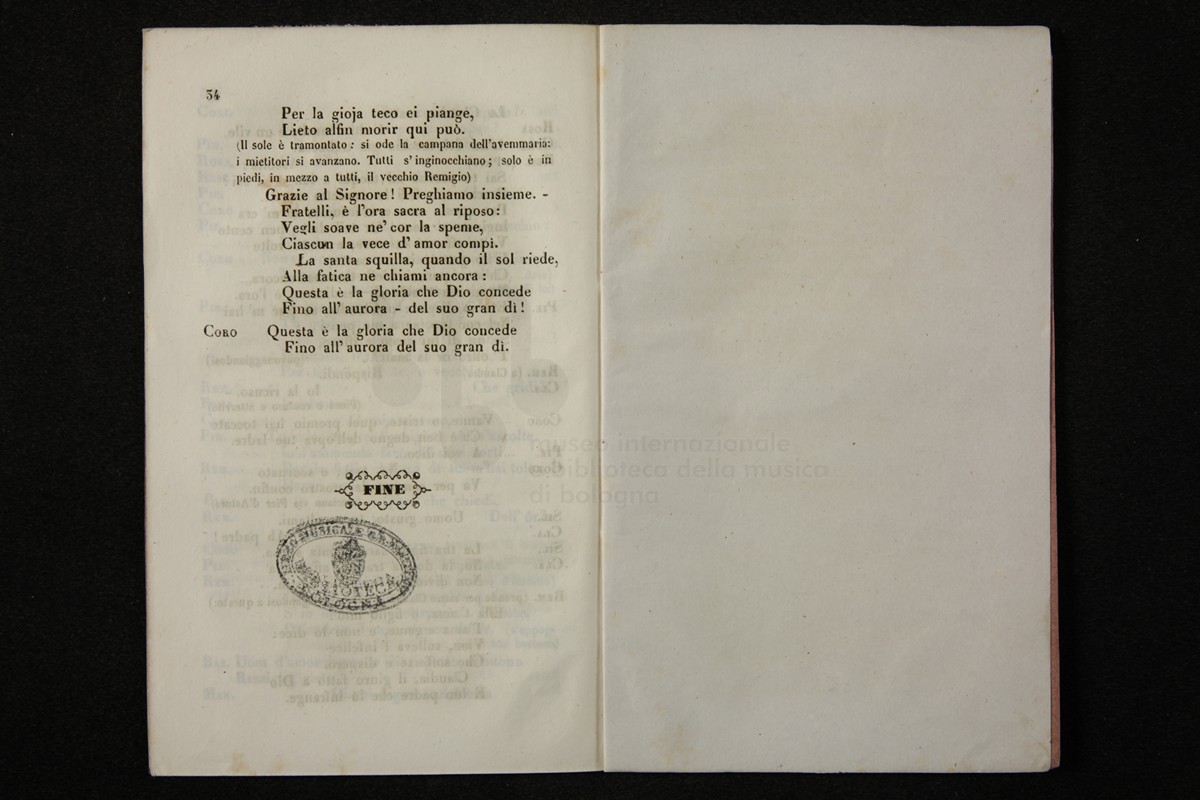 34
Per la gioja teco ei piange,
Lieto alfin morir qui può.
(Il sole è tramontato : si ode la campana dell'avemmaria:
i mietitori si avanzano. Tutti s'inginocchiano; solo è in
piedi, in mezzo a tutti, il vecchio Remigio)
Grazie al Signore! Preghiamo insieme. -
Fratelli, è l'ora sacra al riposo:
Vegli soave ne' cor la speme,
Ciascun la vece d'amor compì.
La santa squilla, quando il sol riede,
Alla fatica ne chiami ancora :
Questa è la gloria che Dio concede
Fino all' aurora - del suo gran dì!
CORO Questa è la gloria che Dio concede
Fino all' aurora del suo gran dì.
FINE
LICEO MUSICALE
BIBLIOTECA
BOLOGNA
museo internazionale
e biblioteca della musica
di bologna